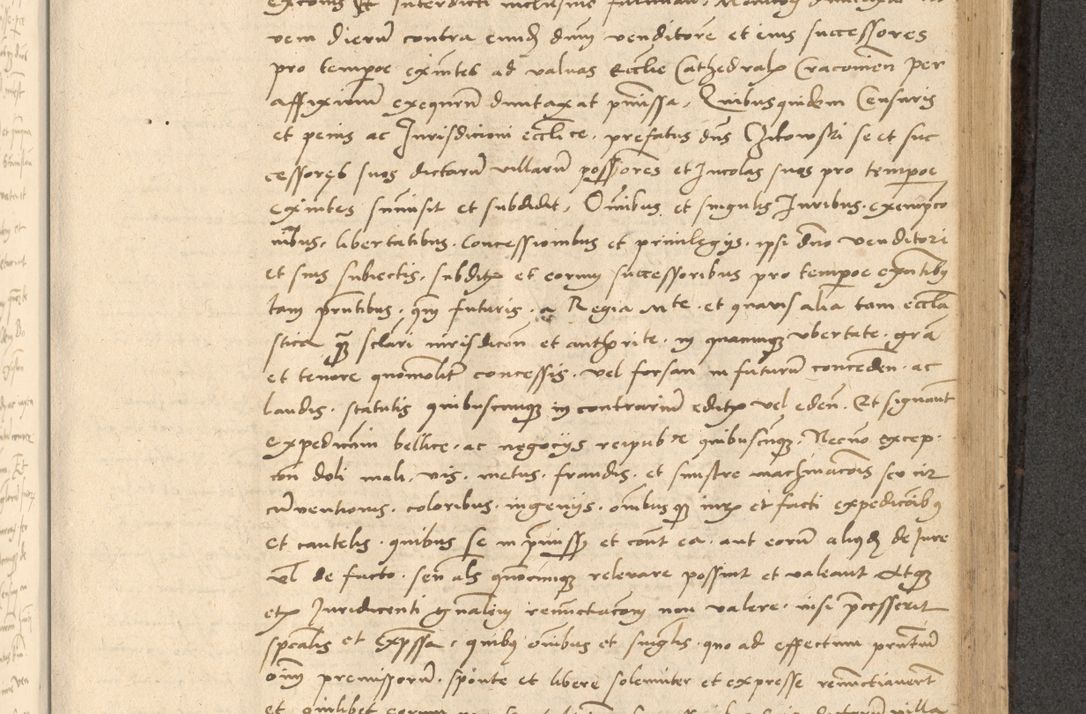 vem dierum contra eund dnm venditore et eius successores
pro tempoe exntes ad valuas Ecclie Cathedralis Cracovien per
affixium exequrum duntaxat pmissa, Quibusquidem Censuris
et penis ac Jurisdicioni ecclice. prefatus dns Czilowski se et suc
cessores suos dictarum villarum possores et Incolas suos pro tempoe
exntes sumisit et subdidit, Omibus et singulis Juribus. exempco
nibus, libertatibus. Concessionibus et privilegijs. ipsi dno venditori
et suis subiectis. subditis et eorum successoribus pro tempoe exntibus
tam pntibus. qm futuris. a Regia Mte. et quavis alia tam eccla
stica qm sclari iurisdicon et authorite. in quacumque ubertate. gra
et tenore quomolit concessis. vel forsan in futurum conceden. ac
laudis. statutis quibuscumque in contrarium editis vel eden. Et signant
expedicioni bellice. ac negocijs reipublice quibuscumque. Necno excep
con doli mali. vis. metus. fraudis. et sinistre machinacois seu cir
cumventionis. coloribus. ingenijs. omibus que iuris et facti expedicoibus
et cautelis. quibus se in pmissis et cont ea. aut eorum aliquod de Jure
vl de facto. seu als quomcumque relevare possint et valeant
etis Juridicenti gnalem renuctacom non valere. nisi pcesserit
spcalis et Expssa, quibus omibus et singlis. quo ad effectum pntium
oim premissorum. sponte et libere solemniter et expresse renuctiaverit